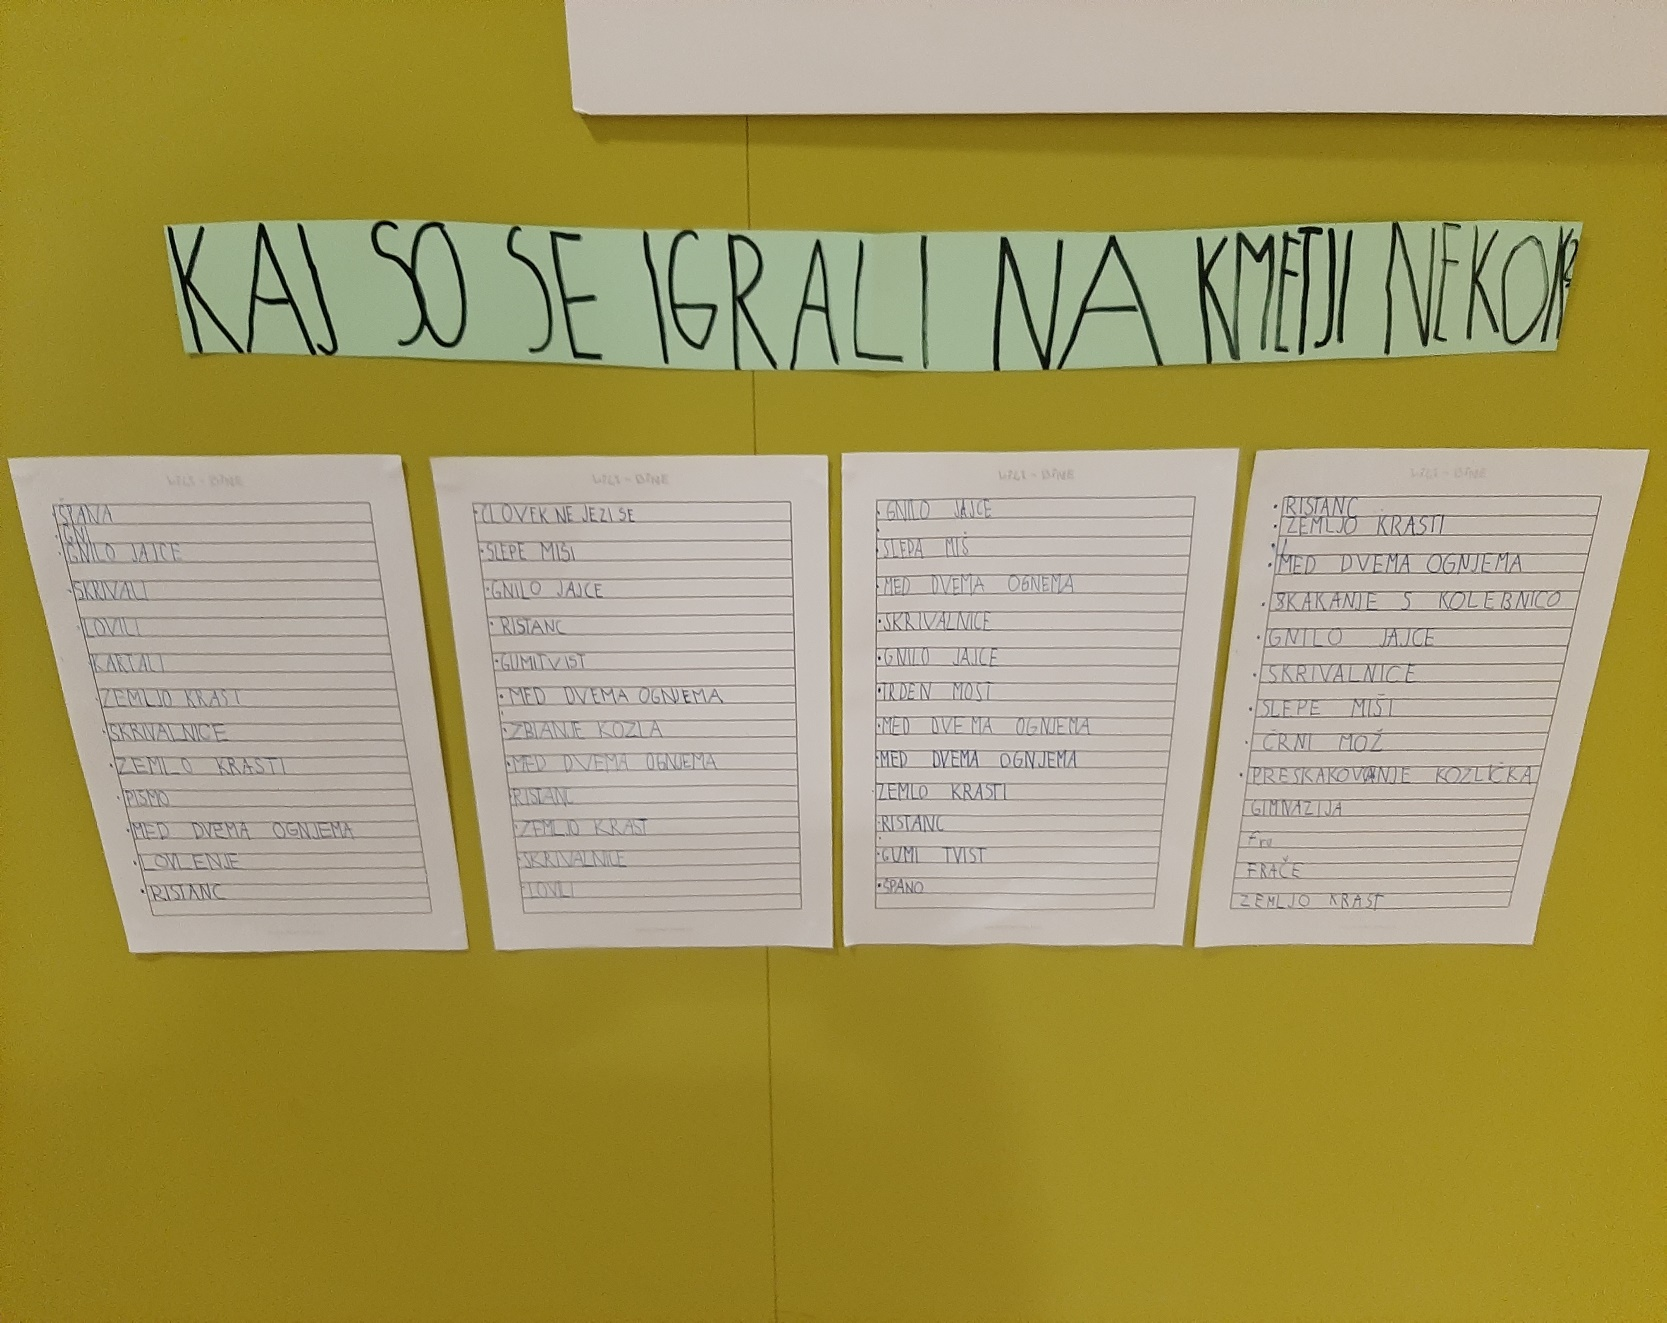 KAJ SO SE IGRALI NA KMETJI NEKOČ?
LILI - BINE
ŠPANA
GNI
GNILO JAJCE
SKRIVALI
LOVILI
KARTALI
ZEMLJO KRAST
SKRIVALNICE
ZEMLO KRASTI
PISMO
MED DVEMA OGNJEMA
LOVLENJE
RISTANC
LILI - BINE
ČLOVEK NE JEZI SE
SLEPE MIŠI
GNILO JAJCE
RISTANC
GUMITVIST
MED DVEMA OGNJEMA
ZBIANJE KOZLA
MED DVEMA OGNJEMA
RISTANC
ZEMLJO KRAST
SKRIVALNICE
LOVILI
LILI - BINE
GNILO JAJCE
SLEPA MIŠ
MED DVEMA OGNEMA
SKRIVALNICE
GNILO JAJCE
TRDEN MOST
MED DVEMA OGNJEMA
MED DVEMA OGNJEMA
ZEMLO KRASTI
RISTANC
GUMI TVIST
ŠPANO
LILI - BINE
RISTANC
ZEMLJO KRASTI
MED DVEMA OGNJEMA
SKAKANJE S KOLEBNICO
GNILO JAJCE
SKRIVALNICE
SLEPE MIŠI
ČRNI MOŽ
PRESKAKOVANJE KOZLIČKA
GIMNAZIJA
Fra
FRAČE
ZEMLJO KRAST